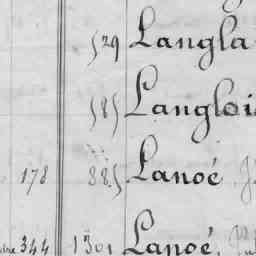 529 Langla
585 Langlois
178 885 Lanoé
344 1301 Lanoé